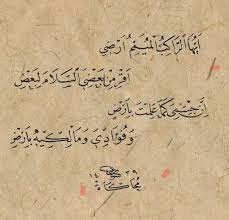 أَيُّهَا الرَّاكِبُ المُيَمِّمُ أَرْضِي
أَقْرِ مِنْ بَعْضِي السَّلَامَ لِبَعْضِي
إِنَّ جِسْمِي كَمَا عَلِمْتَ بِأَرْضٍ
وَفُؤَادِي وَمَالِكِيهِ بِأَرْضِ
محاكاة